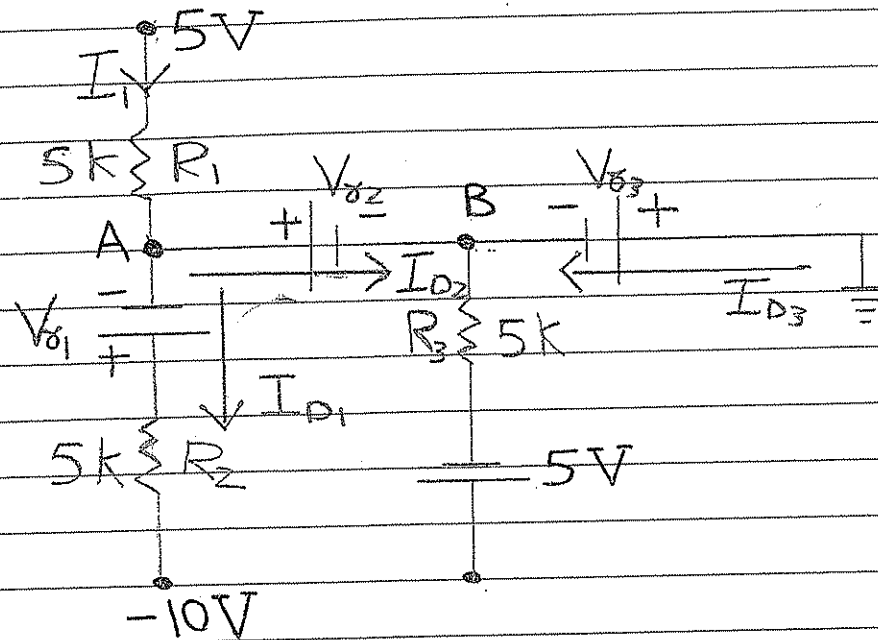 5V
I1
5k R1
Vγ2
B
Vγ3
+ -
- +
A
ID2
ID3
-
Vγ1
+
R3 5k
ID1
5k R2
5V
-10V